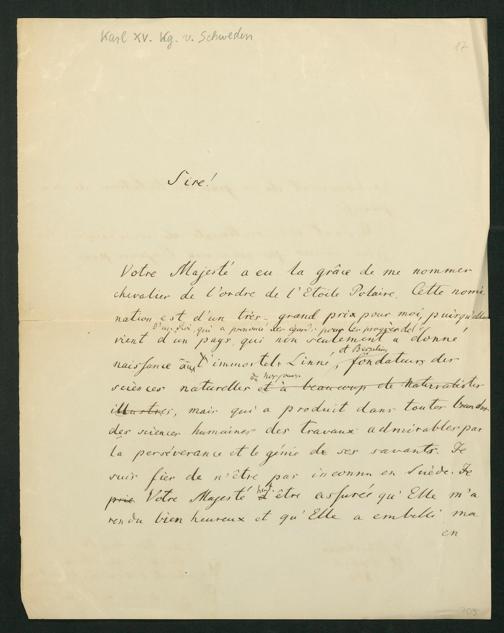 Karl XV. Kg. v. Schweden
17
Sire!
Votre Majesté a eu la grâce de me nommer
chevalier de l'ordre de l'Etoile Polaire. Cette nomi
nation est d'un très-grand prix pour moi, puisqu'elle
d'un Roi, qui a prouvé ses pour les progrès des
vient d'un pays, qui non seulement a donné
et Berzelius
naissance aux l'immortels Linné, fondateurs des
de nos jours
sciences naturelles et à beaucoup de naturalistes
illustres, mais qui a produit dans toutes branches
des sciences humaines des travaux admirables par
la persévérance et le génie de ses savants. Je
suis fier de n'être pas inconnu en Suède. Je
prie Votre Majesté d'être assurée qu'Elle m'a
rendu bien heureux et qu'Elle a embelli ma
en